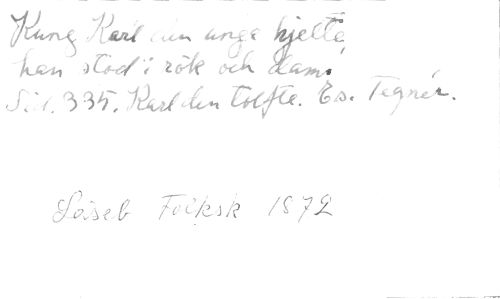 Kung Karl den unga hjelte,
han stod i rök och dam.
Sid. 335. Karl den tolfte. Es. Tegnér.
Läseb Folksk 1872